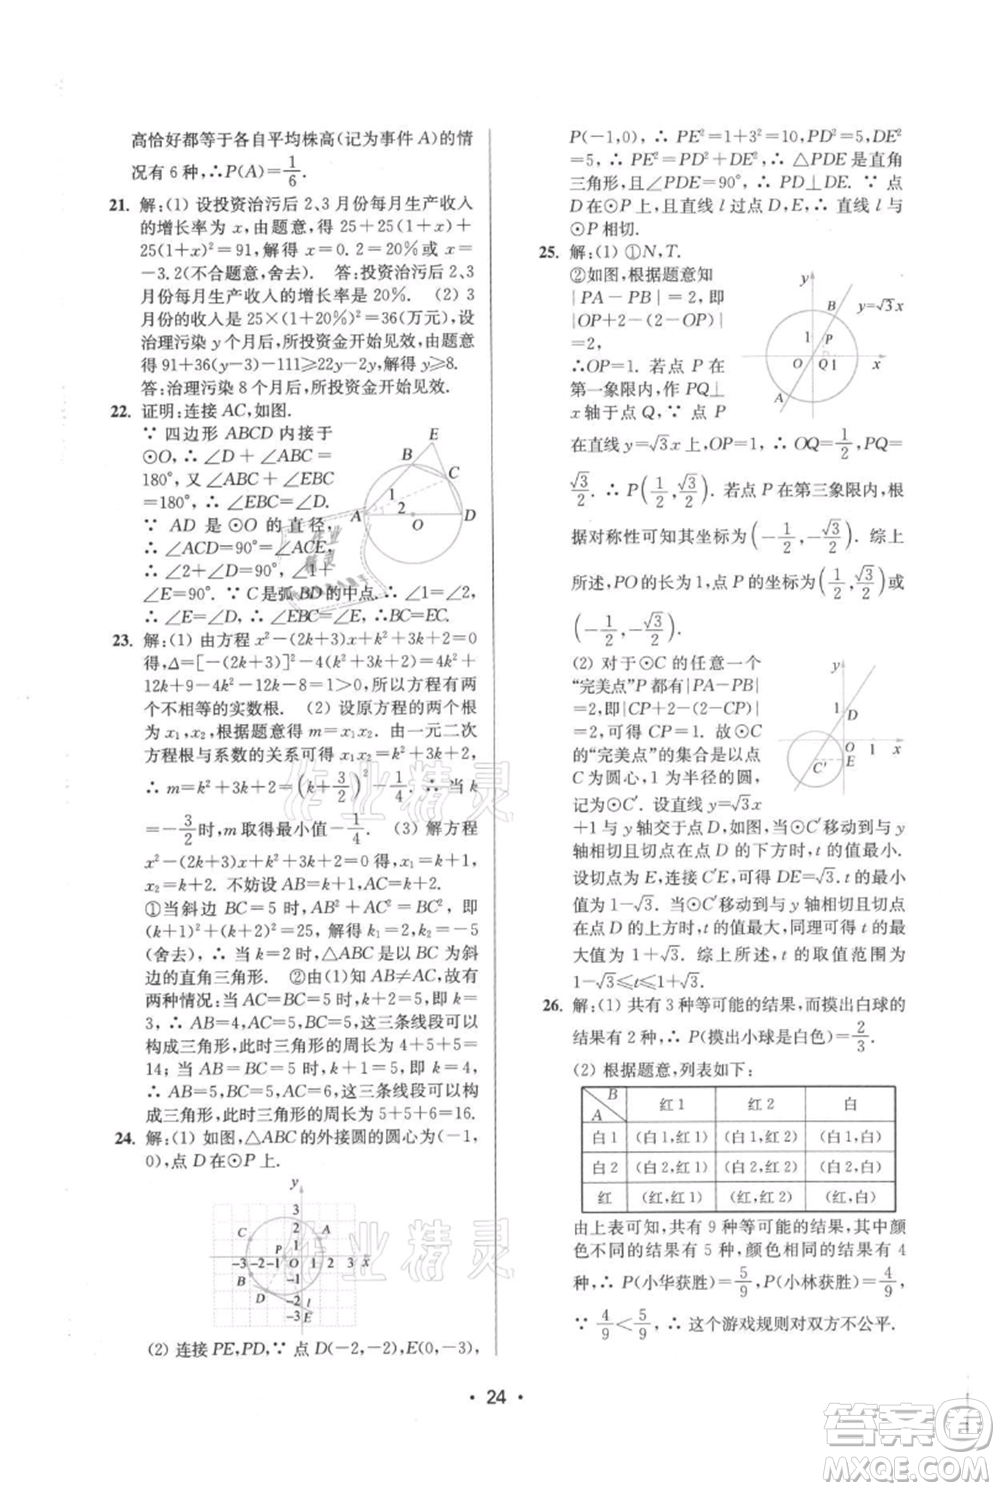 高恰好都等于各自平均株高(记为事件 A)的情
况有 6 种,∴P(A)=1/6.
21. 解:(1) 设投资治污后 2、3 月份每月生产收入
的增长率为 x,由题意得 25+25(1+x)+
25(1+x)²=91,解得 x=0.2=20%或 x=
-3.2(不合题意,舍去). 答:投资治污后 2、3
月份每月生产收入的增长率是 20%. (2) 3
月份的收入是 25×(1+20%)²=36(万元),设
治理污染 y 个月后,所投资金开始见效,由题意
得 91+36(y-3)-111≥25y-2y,解得 y≥8.
答:治理污染 8 个月后,所投资金开始见效.
22. 证明:连接 AC,如图.
∵ 四边形 ABCD 内接于
⊙O,∴ ∠D+∠ABC=
180°,又∠ABC+∠EBC
=180°,∴ ∠EBC=∠D.
∵ AD 是 ⊙O 的直径,
∴ ∠ACD=90°=∠ACE,∴ ∠2+∠D=∠1+
∠E=90°. ∵ C是弧BD的中点,∴ ∠1=∠2,
∴ ∠E=∠D. ∴ ∠EBC=∠E. ∴ BC=EC.
E
B
C
1
2
A
O
D
23. 解:(1) 由方程 x²-(2k+3)x+k²+3k+2=0
得,Δ=[-(2k+3)]²-4(k²+3k+2)=4k²+
12k+9-4k²-12k-8=1>0,所以方程有两
个不相等的实数根. (2) 设原方程的两个根
为 x₁,x₂,根据题意得 m=x₁x₂. 由一元二次
方程根与系数的关系可得 x₁x₂=k²+3k+2,
∴ m=k²+3k+2=(k+3/2)²-1/4,∴ 当 k=
-3/2时,m 取得最小值-1/4. (3) 解方程
x²-(2k+3)x+k²+3k+2=0,得 x₁=k+1,
x₂=k+2. 不妨设 AB=k+1,AC=k+2.
①当斜边 BC=5 时,有 AB²+AC²=BC²,即
(k+1)²+(k+2)²=25,解得 k₁=2,k₂=-5
(舍去),∴ 当 k=2 时,△ABC 是以 BC 为斜
边的直角三角形. ②因为 AB≠AC,故有
两种情况:当 AC=BC=5 时,k+2=5,k=
3,∴ AB=4,AC=5,BC=5,这三条线段可以
构成三角形,此时三角形的周长为 4+5+5=
14,当 AB=BC=5 时,k+1=5,∴ k=4,
∴ AB=5,AC=6,BC=5,这三条线段可以构
成三角形,此时三角形的周长为 5+5+6=16.
24. 解:(1) 如图,△ABC 的外接圆的圆心为(-1,
0),点 D 在⊙P 上.
y
3
2
1
C
A
P
O
-3 -2 -1 1 2 3 x
B
-1
D
-2
l
-3
E
(2) 连接 PE,PD,∵ 点 D(-2,-2),E(0,-3),
P(-1,0),∴ PE²=1+3²=10,PD²=5,DE²
=5,∴ PE²=PD²+DE²,∴ △PDE 是直角
三角形,且∠PDE=90°,∴ PD⊥DE. ∵ 点
D 在⊙P 上,且直线 l 过点 D,E,∴ 直线 l 与
⊙P 相切.
25. 解:(1) ①N,T.
②如图,根据题意知
|PA-PB|=2,即
|OP+2-(2-OP)|
=2,
∴OP=1. 若点 P 在第
一象限内,作 PQ⊥
x 轴于点 Q,∵ 点 P
在直线 y=√3x 上,OP=1,∴ OQ=1/2,PQ=
√3/2. ∴ P(1/2,√3/2). 若点 P 在第三象限内,根
据对称性可知其坐标为(-1/2,-√3/2). 综上
所述,PO 的长为 1,点 P 的坐标为(1/2,√3/2)或
(-1/2,-√3/2).
y
B
y=√3x
1
P
O
Q 1
x
A
(2) 对于⊙C 的任意一个
“完美点”P 都有|PA-PB|
=2,即|CP+2-(2-CP)|
=2,可得 CP=1. 故⊙C
的“完美点”的集合是以点
C 为圆心,1 为半径的圆,
记为⊙C′. 设直线 y=√3x
+1 与 y 轴交于点 D,如图,当⊙C′移动到与 y
轴相切且切点在点 D 的下方时,t 的值最小.
设切点为 E,连接 C′E,可得 DE=√3. t 的最小
值为 1-√3. 当⊙C′移动到与 y 轴相切且切点
在点 D 的上方时,t 的值最大,同理可得 t 的最
大值为 1+√3. 综上所述,t 的取值范围为
1-√3≤t≤1+√3.
y
D
O 1 x
C′
E
26. 解:(1) 共有 3 种等可能的结果,而摸出白球的
结果有 2 种,∴ P(摸出小球是白色)=2/3.
(2) 根据题意,列表如下:
A B 红 1 红 2 白
白 1 (白 1,红 1) (白 1,红 2) (白 1,白)
白 2 (白 2,红 1) (白 2,红 2) (白 2,白)
红 (红,红 1) (红,红 2) (红,白)
由上表可知,共有 9 种等可能的结果,其中颜
色不同的结果有 5 种,颜色相同的结果有 4
种,∴ P(小华获胜)=5/9,P(小林获胜)=4/9,
∵ 4/9<5/9,∴ 这个游戏规则对双方不公平.
· 24 ·
作业精灵
作业精灵
作业精灵
答案圈
MXQE.COM